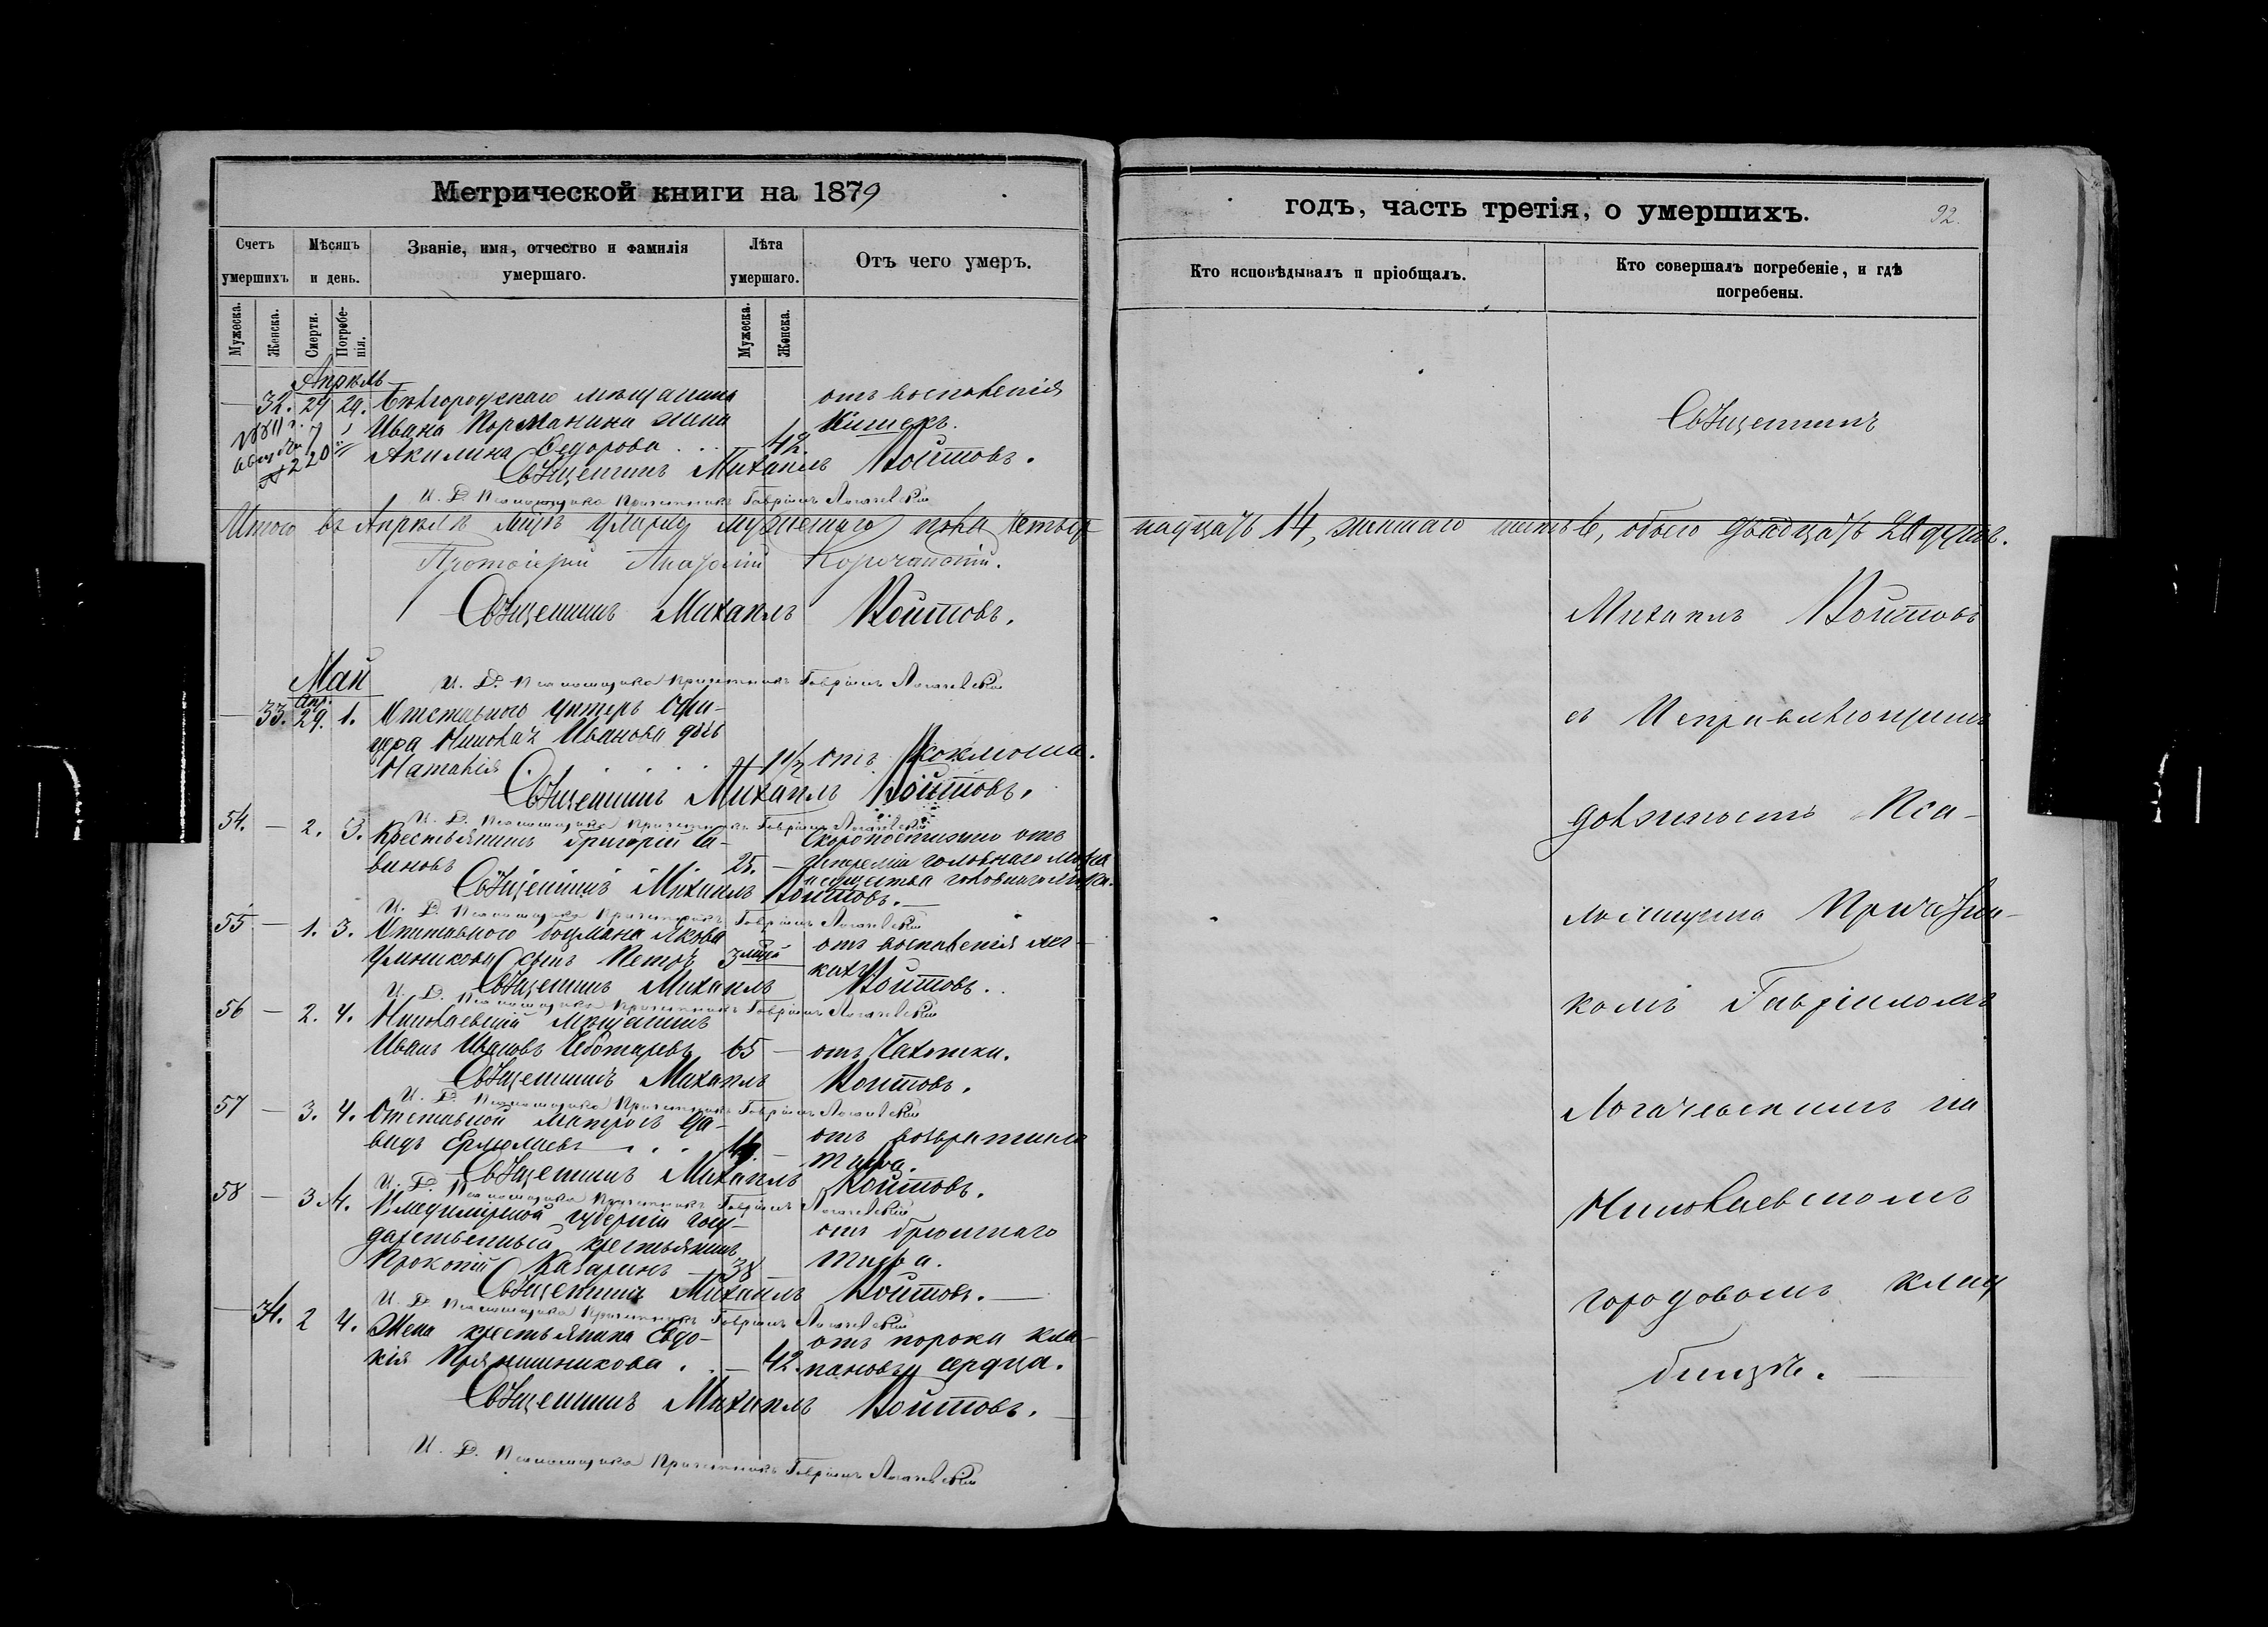 Метрической книги на 1879
Счетъ умершихъ.
Мѣсяцъ и день.
Званіе, имя, отчество и фамилія умершаго.
Лѣта умершаго.
Отъ чего умеръ.
Мужеска.
Женска.
Смерти.
Погребенія.
Мужеска.
Женска.
Апрѣль
— 32. 27 29. Бѣлгородскаго мѣщанина отъ воспаленія
Ивана жена Кишекъ.
Акилина Федорова . . . 42.
Священникъ Михаилъ Войтовъ.
И. Д. Псаломщика Причетникъ Гавріилъ Логачевскій
Итого въ Апрѣлѣ мцѣ умерло мужескаго пола четыр-
Протоіерей Корчанскій.
Священникъ Михаилъ Войтовъ.
И. Д. Псаломщика Причетникъ Гавріилъ Логачевскій
Май
Апр.
— 33. 29. 1. Отставного унтеръ офи-
цера Иванова дочь
Наталія . . . . 1½ отъ Коклюша.
Священникъ Михаилъ Войтовъ.
И. Д. Псаломщика Причетникъ Гавріилъ Логачевскій
54. — 2. 3. Крестьянинъ Григорій Са- Скоропостижно отъ
виновъ 25. — головнаго мозга
головнаго мозга.
Священникъ Михаилъ Войтовъ. —
И. Д. Псаломщика Причетникъ Гавріилъ Логачевскій
55 — 1. 3. Отставного боцмана Якова отъ воспаленія лег-
сынъ Петръ 3 кихъ.
Священникъ Михаилъ Войтовъ.
И. Д. Псаломщика Причетникъ Гавріилъ Логачевскій
56 — 2. 4. Николаевскій мѣщанинъ
Иванъ Ивановъ Чеботаревъ 65 — отъ Чахотки.
Священникъ Михаилъ Войтовъ.
И. Д. Псаломщика Причетникъ Гавріилъ Логачевскій
57 — 3. 4. Отставной матросъ Да- отъ возвратнаго
видъ Ермолаевъ . . . — тифа.
Священникъ Михаилъ Войтовъ.
И. Д. Псаломщика Причетникъ Гавріилъ Логачевскій
58 — 3. 4. Владимірской губерніи госу- отъ брюшнаго
дарственный крестьянинъ
Прокопій Казаринъ — 38 — тифа.
Священникъ Михаилъ Войтовъ. —
И. Д. Псаломщика Причетникъ Гавріилъ Логачевскій
— 34. 2 4. Жена крестьянина Евдо- отъ порока кла-
кія Прянишникова . . — 42. пановъ сердца.
Священникъ Михаилъ Войтовъ. —
И. Д. Псаломщика Причетникъ Гавріилъ Логачевскій
годъ, часть третія, о умершихъ.
92.
Кто исповѣдывалъ и пріобщалъ.
Кто совершалъ погребеніе, и гдѣ погребены.
Священникъ
надцать 14, женскаго шесть 6, обоего двадцать 20 душъ.
Михаилъ Войтовъ
съ Исправляющимъ
должность Пса-
ломщика Причетни-
комъ Гавріиломъ
Логачевскимъ на
Николаевскомъ
городовомъ клад
бищѣ. —